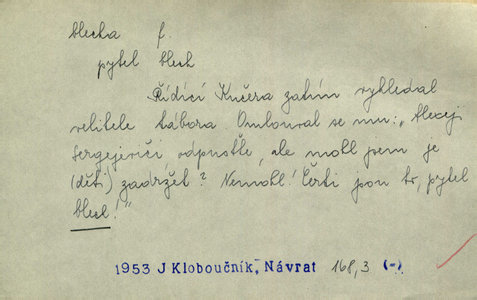 blecha f.
pytel blech
Řídící Kučera zatím vyhledal
velitele tábora. Omlouval se mu: „Alexeji
Sergejeviči odpusťte, ale mohl jsem je
(děti) zadržet? Nemohl! Čerti jsou to, pytel
blech!"
1953 J Kloboučník, Návrat 168,3 (-)